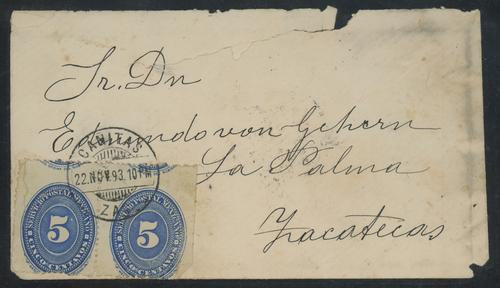 Sr. Dn
Edmundo von Gehren
La Palma
Zacatecas
CAÑITAS
22.NOV.93.10PM
ZAC
SERVICIO POSTAL MEXICANO
5
CINCO CENTAVOS
SERVICIO POSTAL MEXICANO
5
CINCO CENTAVOS